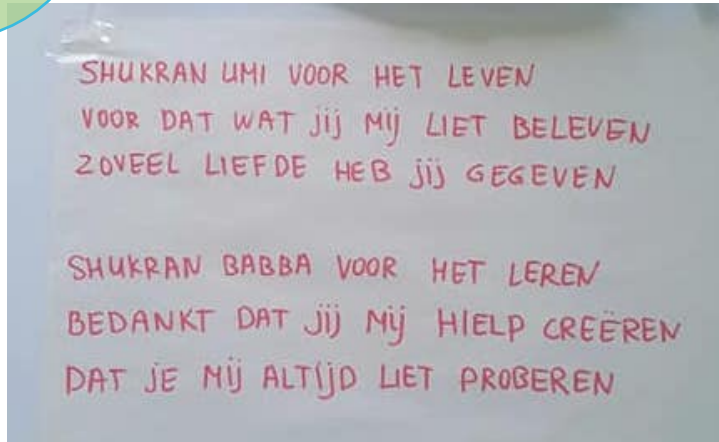 SHUKRAN UMI VOOR HET LEVEN
VOOR DAT WAT jij Mij LIET BELEVEN
ZOVEEL LIEFDE HEB jij GEGEVEN
SHUKRAN BABBA VOOR HET LEREN
BEDANKT DAT jij Mij HIELP CREËREN
DAT jE Mij ALTijD LIET PROBEREN